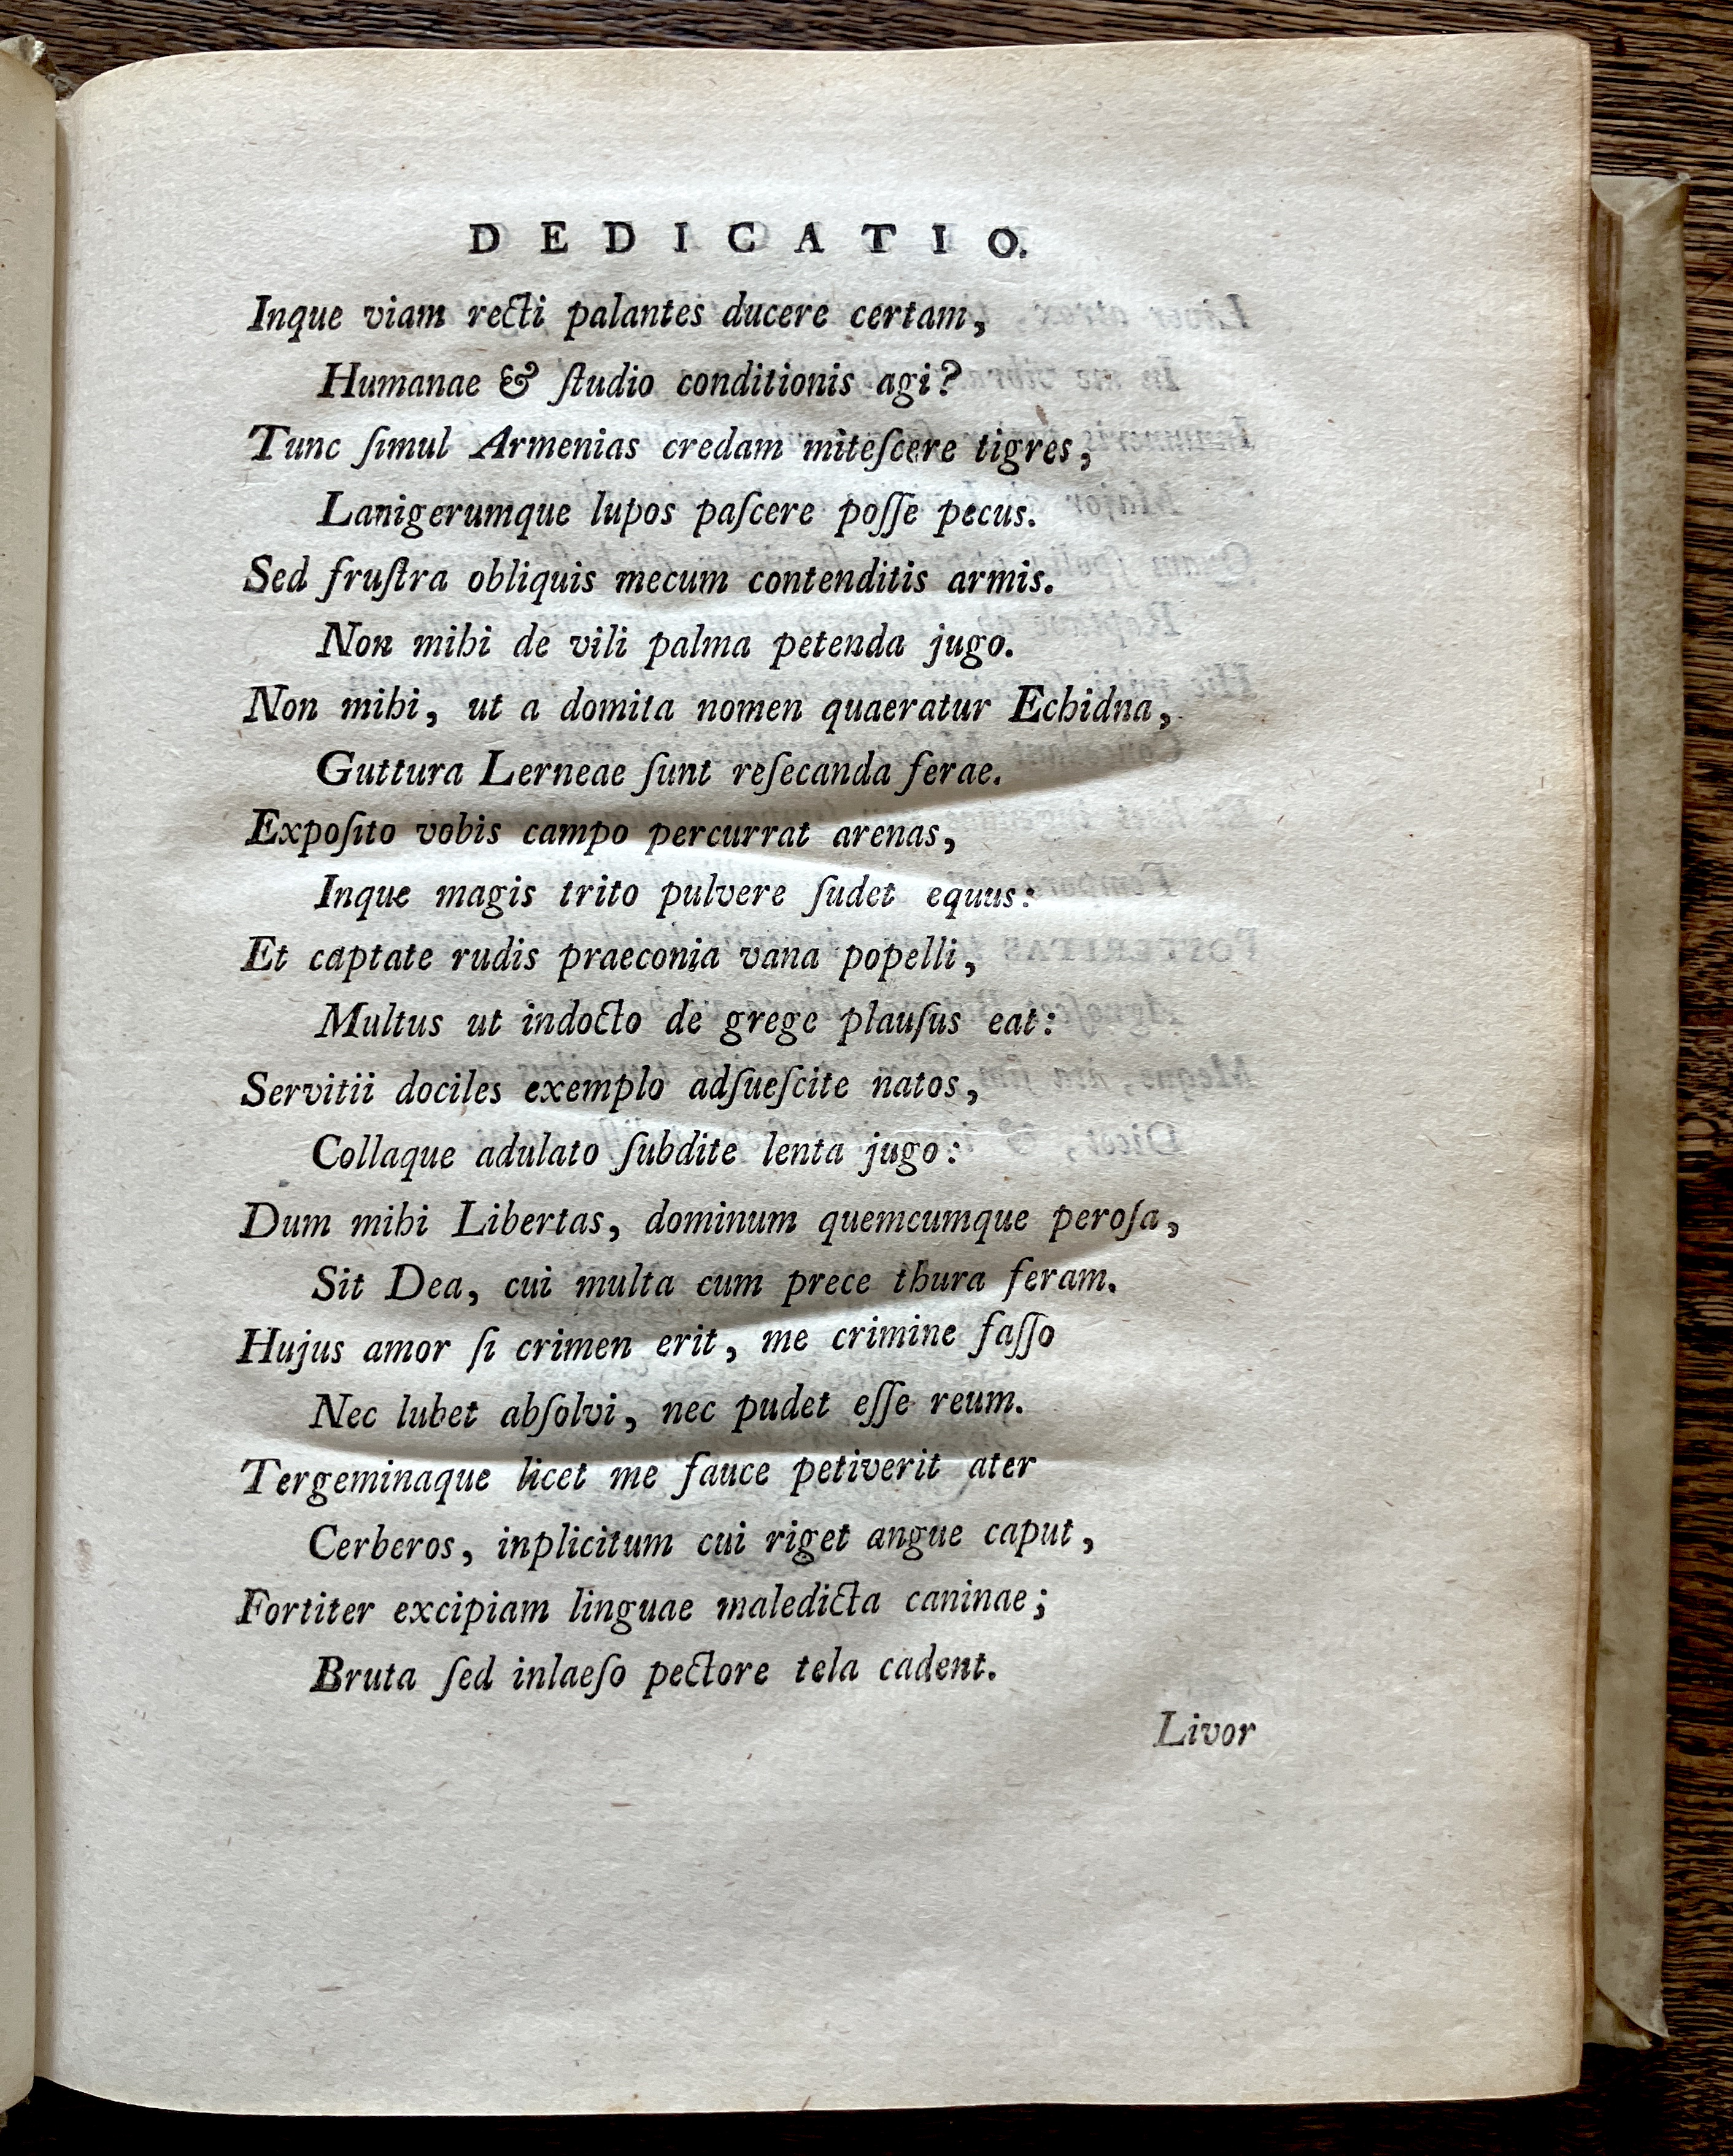 DEDICATIO.
Inque viam recti palantes ducere certam,
Humanae & ſtudio conditionis agi?
Tunc ſimul Armenias credam miteſcere tigres,
Lanigerumque lupos paſcere poſſe pecus.
Sed fruſtra obliquis mecum contenditis armis.
Non mihi de vili palma petenda jugo.
Non mihi, ut a domita nomen quaeratur Echidna,
Guttura Lerneae ſunt reſecanda ferae.
Expoſito vobis campo percurrat arenas,
Inque magis trito pulvere ſudet equus:
Et captate rudis praeconia vana popelli,
Multus ut indocto de grege plauſus eat:
Servitii dociles exemplo adſueſcite natos,
Collaque adulato ſubdite lenta jugo:
Dum mihi Libertas, dominum quemcumque peroſa,
Sit Dea, cui multa cum prece thura feram.
Hujus amor ſi crimen erit, me crimine faſſo
Nec lubet abſolvi, nec pudet eſſe reum.
Tergeminaque licet me fauce petiverit ater
Cerberos, inplicitum cui riget angue caput,
Fortiter excipiam linguae maledicta caninae;
Bruta ſed inlaeſo pectore tela cadent.
Livor